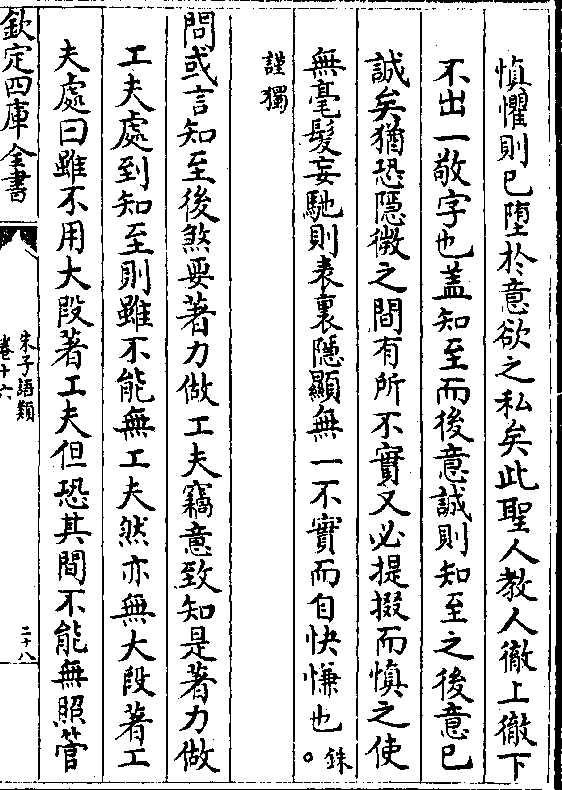 慎懼則已墮於意欲之私矣此聖人教人徹上徹下
不出一敬字也蓋知至而後意誠則知至之後意已
誠矣猶恐隱微之間有所不實又必提掇而慎之使
無毫髮妄馳則表裏隱顯無一不實而自快慊也銖。
謹獨
問或言知至後煞要著力做工夫竊意致知是著力做
工夫處到知至則雖不能無工夫然亦無大段著工
夫處曰雖不用大段著工夫但恐其間不能無照管
欽定四庫全書
朱子語類
卷十六
二十八